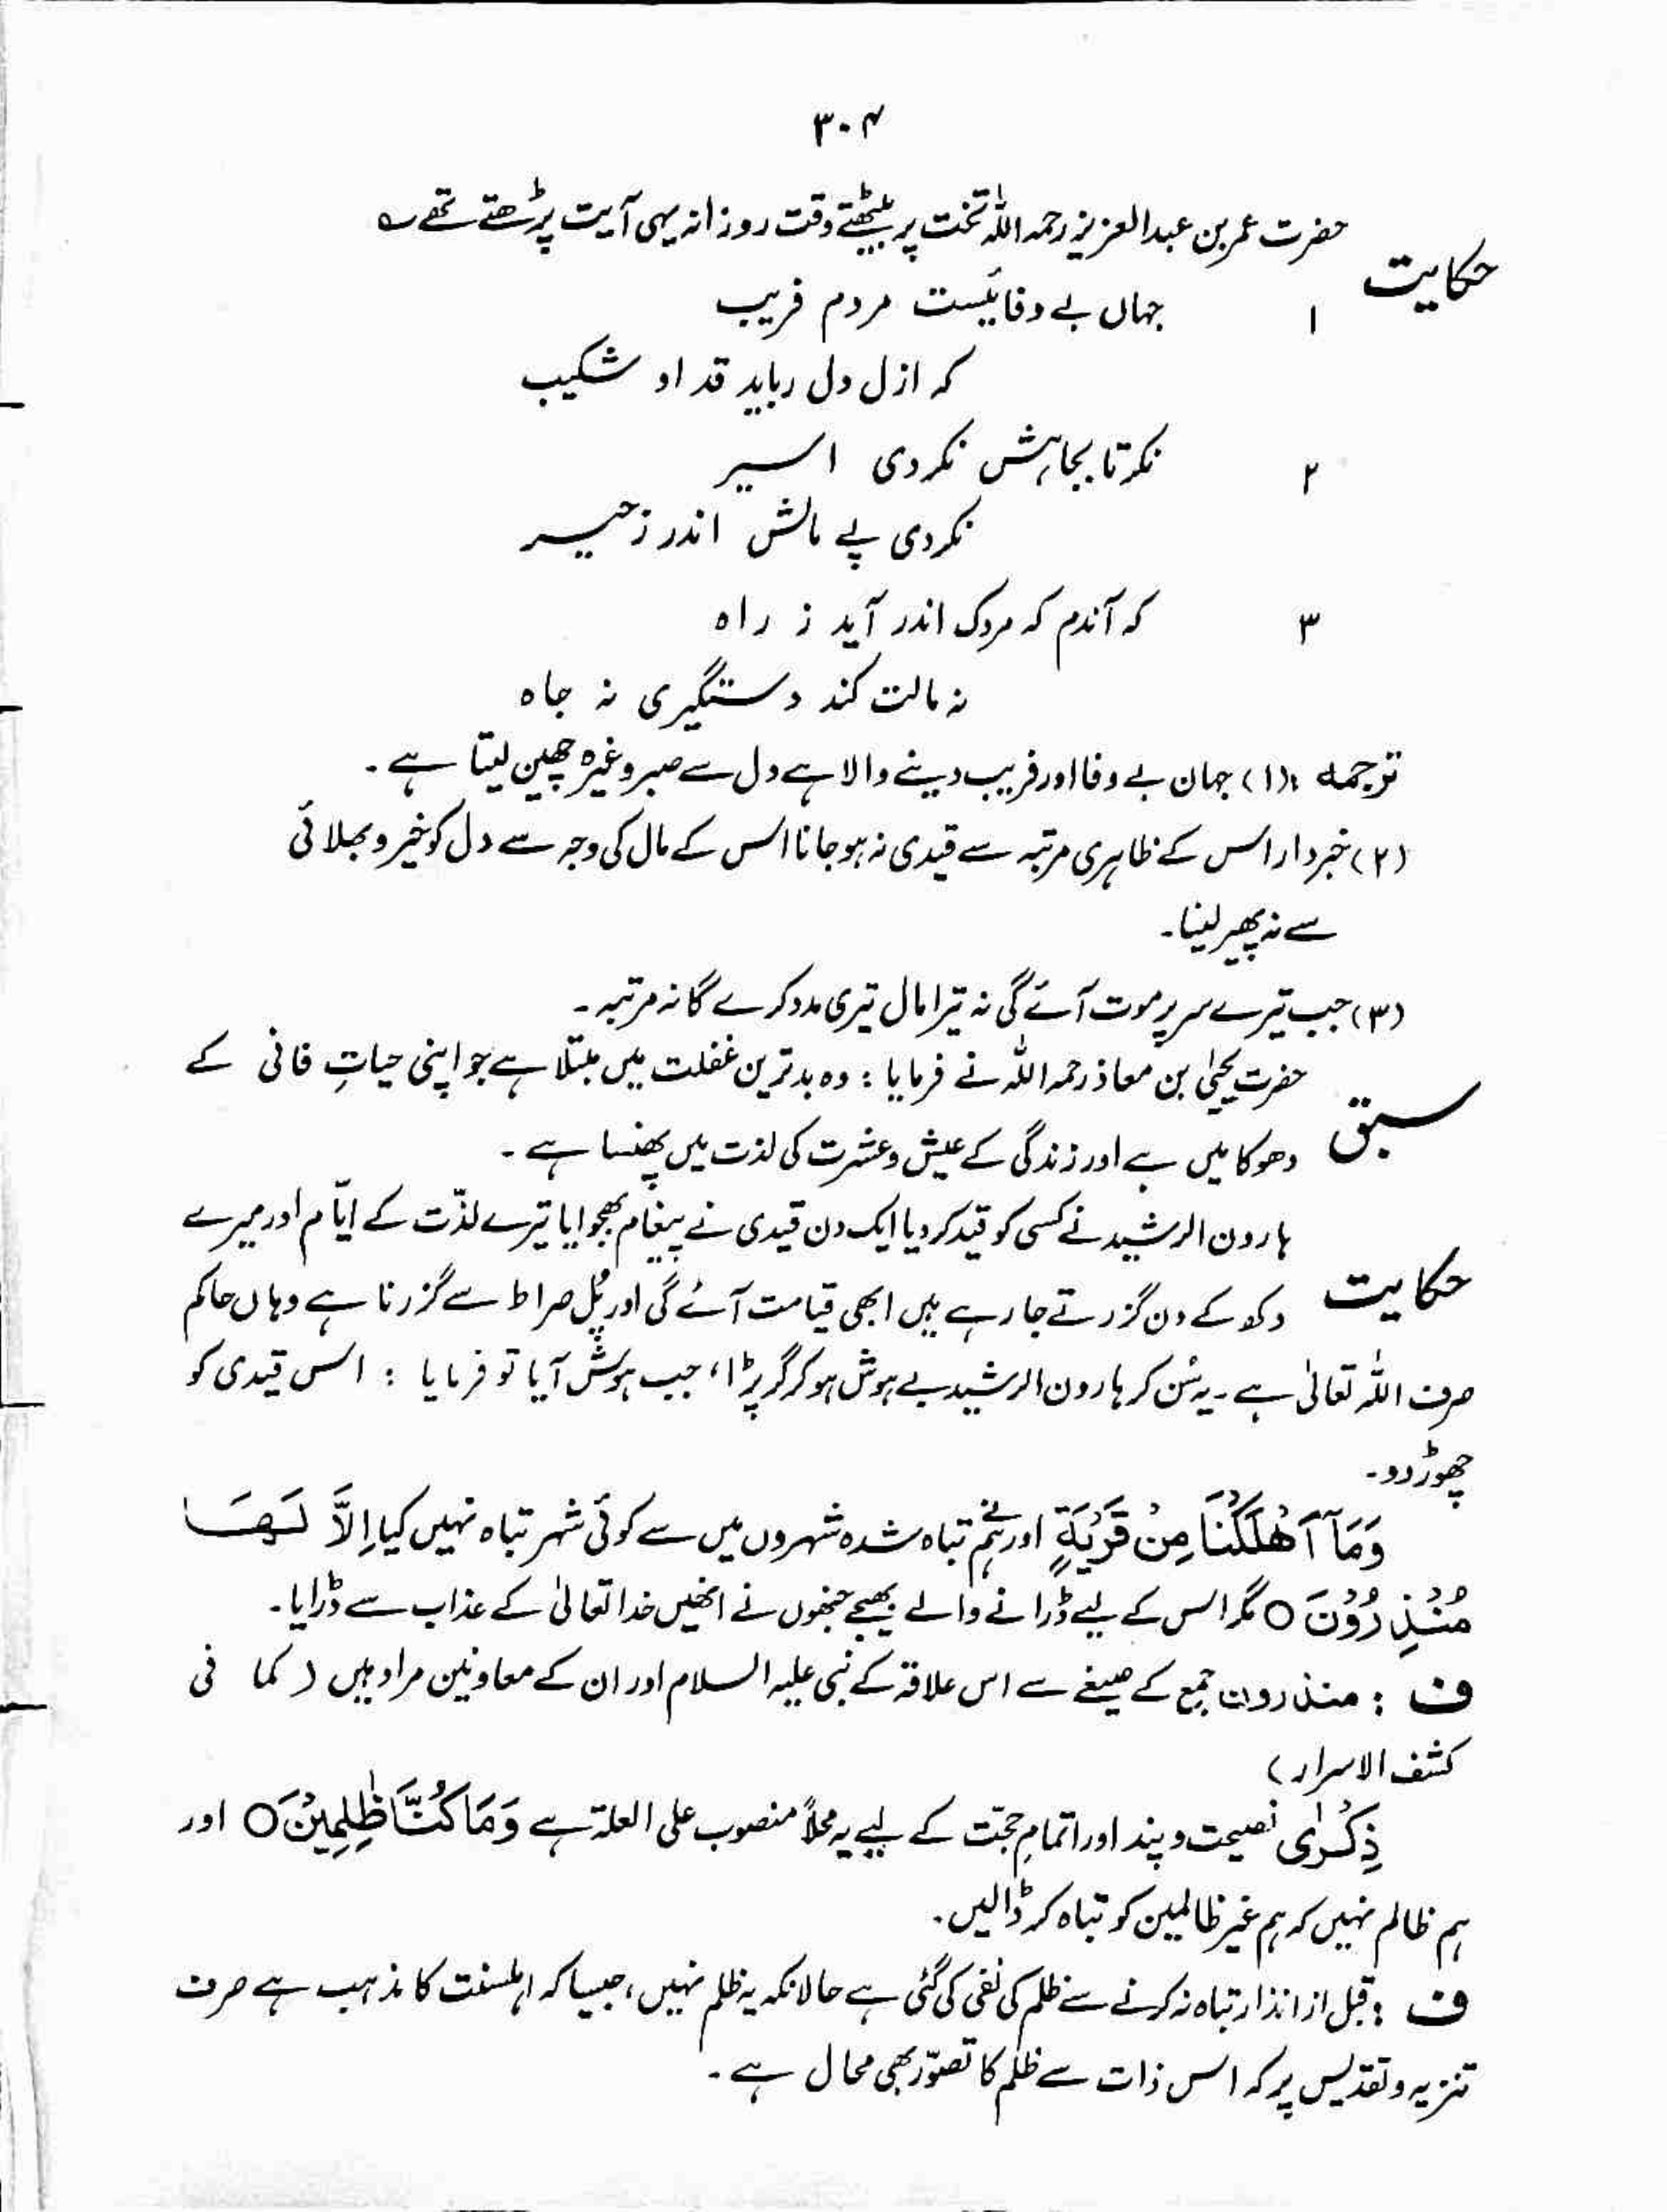 ۳۰۴
حکایت حضرت عمر بن عبدالعزیز رحمہ اللہ تخت پر بیٹھتے وقت روزانہ یہی آیت پڑھتے تھے ؎
۱ جہاں بے وفائیست مردم فریب
کہ از دل رباید قد او شکیب
۲ نگر تا بجاہش نگردی اسیر
نگردی پے مالش اندر زحیر
۳ کہ آندم کہ مرگ اندر آید ز راہ
نہ مالت کند دستگیری نہ جاہ
ترجمہ : (۱) جہان بے وفا اور فریب دینے والا ہے دل سے صبر وغیرہ چھین لیتا ہے ۔
(۲) خبردار اس کے ظاہری مرتبہ سے قیدی نہ ہوجانا اس کے مال کی وجہ سے دل کو خیر و بھلائی
سے نہ پھیر لینا ۔
(۳) جب تیرے سر پر موت آئے گی نہ تیرا مال تیری مدد کرے گا نہ مرتبہ ۔
سبق حضرت یحییٰ بن معاذ رحمہ اللہ نے فرمایا : وہ بدترین غفلت میں مبتلا ہے جو اپنی حیاتِ فانی کے
دھوکا میں ہے اور زندگی کے عیش و عشرت کی لذت میں پھنسا ہے ۔
حکایت ہارون الرشید نے کسی کو قید کر دیا ایک دن قیدی نے پیغام بھجوایا تیرے لذّت کے ایّام اور میرے
دکھ کے دن گزرتے جا رہے ہیں ابھی قیامت آئے گی اور پُل صراط سے گزرنا ہے وہاں حاکم
صرف اللہ تعالیٰ ہے ۔ یہ سُن کر ہارون الرشید بے ہوش ہو کر گر پڑا ، جب ہوش آیا تو فرمایا : اس قیدی کو
چھوڑ دو ۔
وَمَآ اَھْلَکْنَا مِنْ قَرْیَۃٍ اور ہم نے تباہ شدہ شہروں میں سے کوئی شہر تباہ نہیں کیا اِلَّا لَھَا
مُنْذِرُوْنَ ○ مگر اس کے لیے ڈرانے والے بھیجے جنھوں نے انھیں خدا تعالیٰ کے عذاب سے ڈرایا ۔
ف : منذرون جمع کے صیغے سے اس علاقہ کے نبی علیہ السلام اور ان کے معاونین مراد ہیں ( کما فی
کشف الاسرار )
ذِکْرٰی نصیحت و پند اور اتمامِ حجّت کے لیے یہ محلاً منصوب علی العلۃ ہے وَمَا کُنَّا ظٰلِمِیْنَ ○ اور
ہم ظالم نہیں کہ ہم غیر ظالمین کو تباہ کر ڈالیں ۔
ف : قبل از انذار تباہ نہ کرنے سے ظلم کی نفی کی گئی ہے حالانکہ یہ ظلم نہیں ، جیسا کہ اہلسنت کا مذہب ہے صرف
تنزیہ و تقدیس پر کہ اس ذات سے ظلم کا تصوّر بھی محال ہے ۔